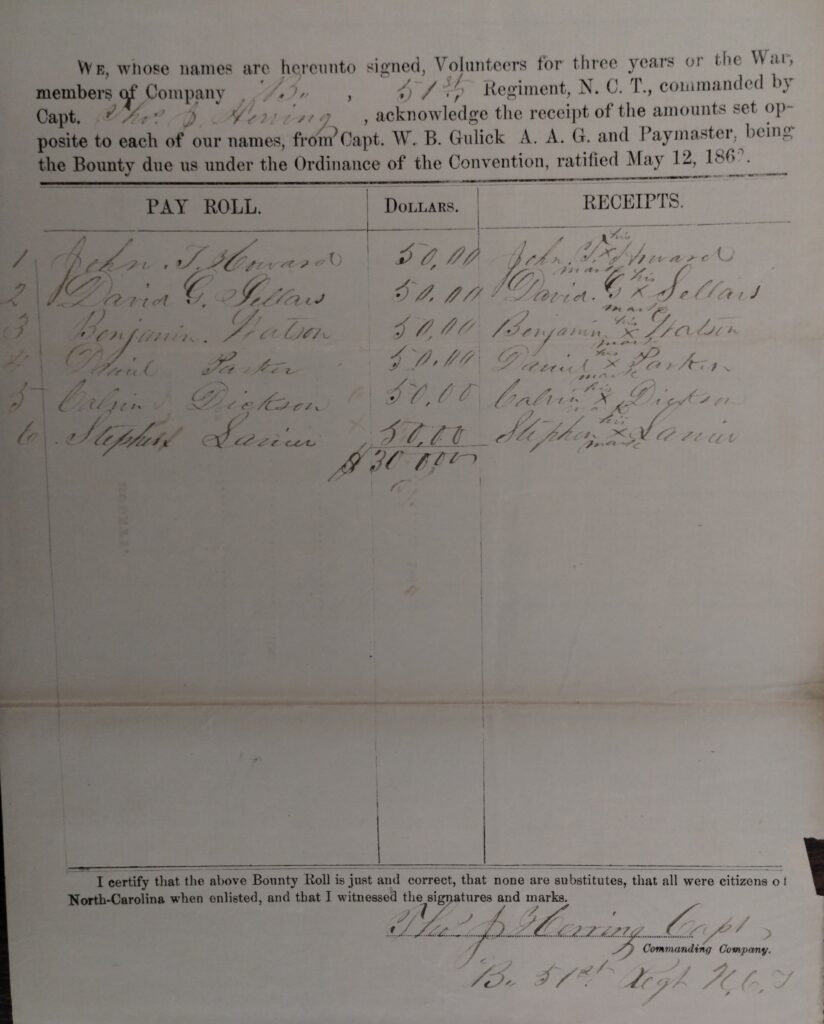 WE, whose names are hereunto signed, Volunteers for three years or the War,
members of Company "B." , 51st, Regiment, N. C. T., commanded by
Capt. Thos. J. Herring , acknowledge the receipt of the amounts set op-
posite to each of our names, from Capt. W. B. Gulick A. A. G. and Paymaster, being
the Bounty due us under the Ordinance of the Convention, ratified May 12, 186
PAY ROLL. DOLLARS. RECEIPTS.
1 John. T. Howard 50.00 John. T. his x mark Howard
2 David G. Sellars 50.00 David. G his x mark Sellars
3 Benjamin. Watson 50,00 Benjamin his x mark Watson
4 Daniel Parker 50.00 Daniel his x mark Parker
5 Calvin Dickson 50.00 Calvin his x mark Dickson
6 Stephen Lanier 50.00 Stephen his x mark Lanier
$300.00
I certify that the above Bounty Roll is just and correct, that none are substitutes, that all were citizens of
North-Carolina when enlisted, and that I witnessed the signatures and marks.
Thos J Herring Capt
Commanding Company.
"B. 51st Regt N.C.T